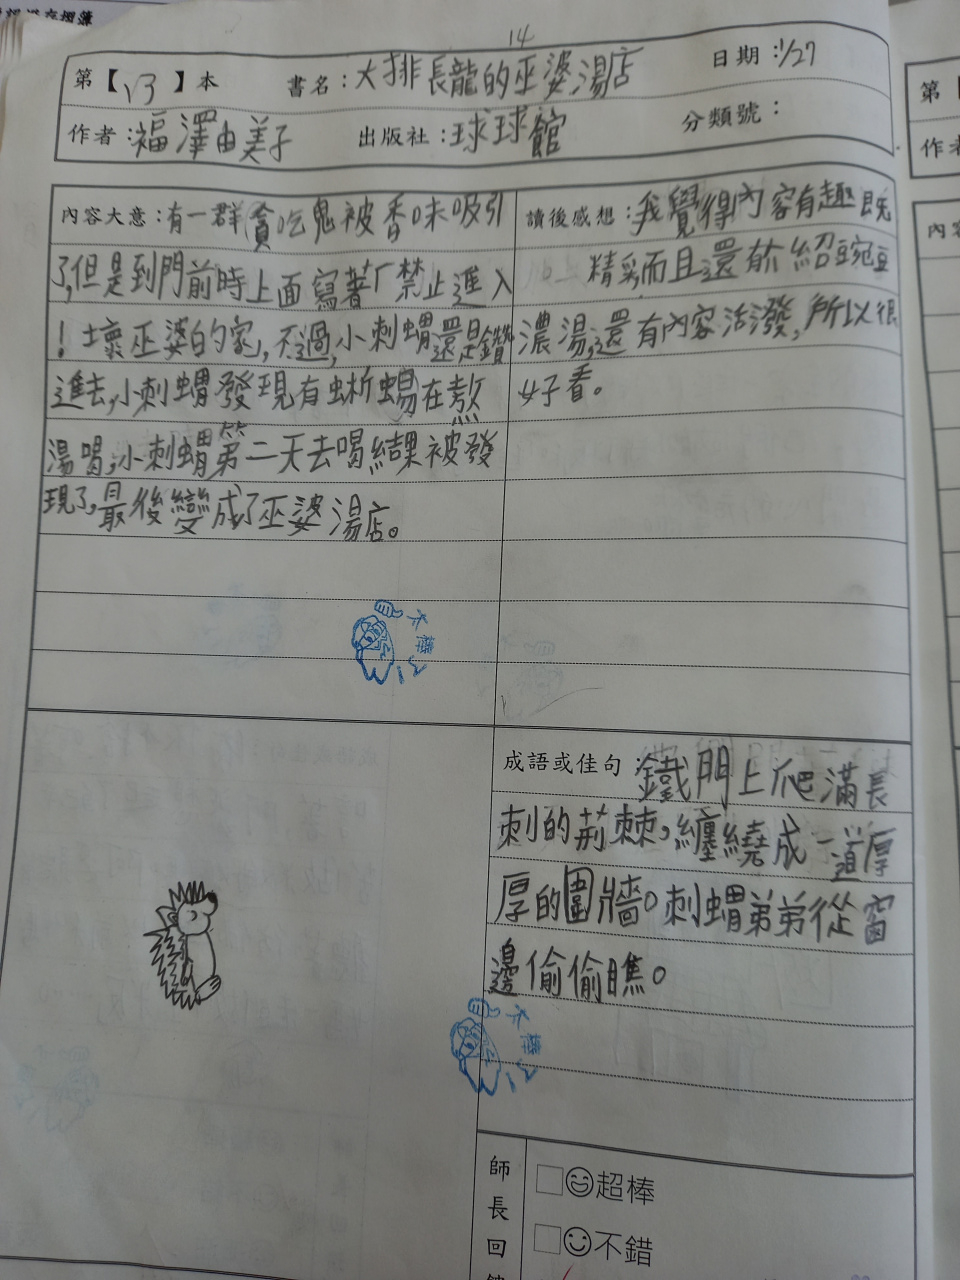 14
第【13】本 書名：大排長龍的巫婆湯店 日期：1/27
作者：福澤由美子 出版社：球球館 分類號：
內容大意：有一群貪吃鬼被香味吸引
了,但是到門前時上面寫著「禁止進入
！壞巫婆的家,不過,小刺蝟還是鑽
進去,小刺蝟發現有蜥蜴在熬
湯喝,小刺蝟第二天去喝結果被發
現了,最後變成了巫婆湯店。
讀後感想：我覺得內容有趣既
精彩而且還有介紹豌豆
濃湯,還有內容活潑,所以很
好看。
太棒了!
成語或佳句：鐵門上爬滿長
刺的荊棘,纏繞成一道厚
厚的圍牆。刺蝟弟弟從窗
邊偷偷瞧。
太棒了!
師長回
超棒
不錯
第【
作者
內容